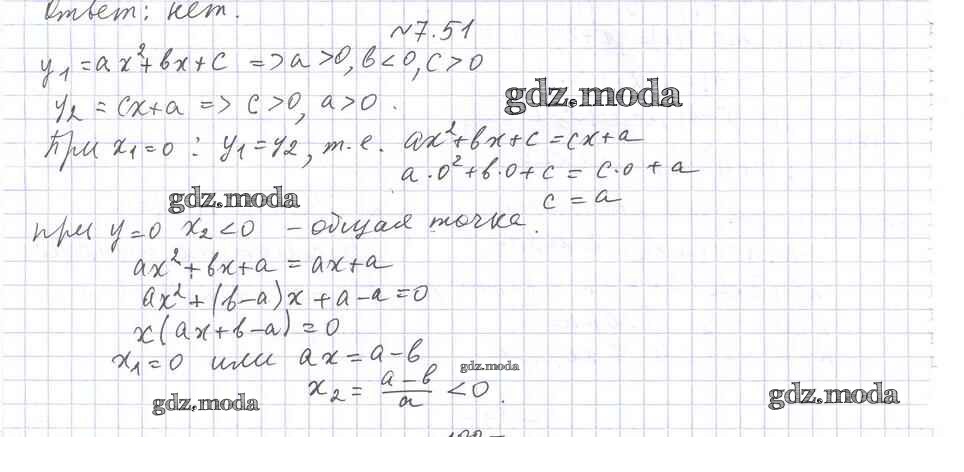 Ответ: нет.
№7.51
y₁ = ax² + bx + c => a > 0, b < 0, c > 0
y₂ = cx + a => c > 0, a > 0.
gdz.moda
При x₁ = 0 : y₁ = y₂, т.е. ax² + bx + c = cx + a
a·0² + b·0 + c = c·0 + a
gdz.moda
c = a
при y = 0 x₂ < 0 – общая точка.
ax² + bx + a = ax + a
ax² + (b – a)x + a – a = 0
x(ax + b – a) = 0
x₁ = 0 или ax = a – b
gdz.moda
x₂ = (a – b)/a < 0.
gdz.moda
gdz.moda